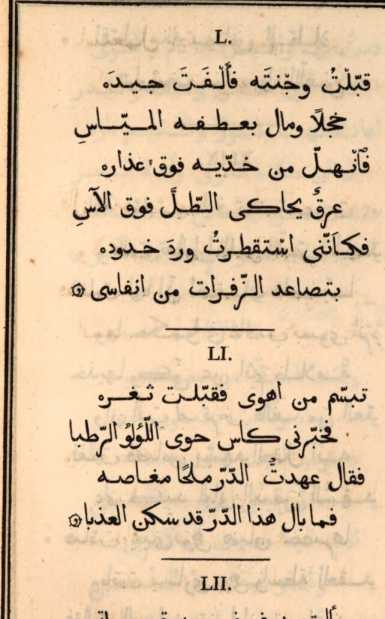 L.
قبّلْتُ وجْنتَه فألفَتَ جيدَه
خجلًا ومال بعطفه الميّاسِ
فآنهلّ من خدّيه فوق عذاره
عرقٌ يحاكى الطّلَّ فوق الآسِ
فكأنّنى استقطرتُ وردَ خدوده
بتصاعد الزّفرات من انفاسى
LI.
تبسّم من اهوى فقبّلت ثغره
فخبّرنى كاس حوى اللّؤلؤ الرّطبا
فقال عهدتُ الدّرّ ملحًا مغاصه
فما بال هذا الدّرّ قد سكن العذبا
LII.